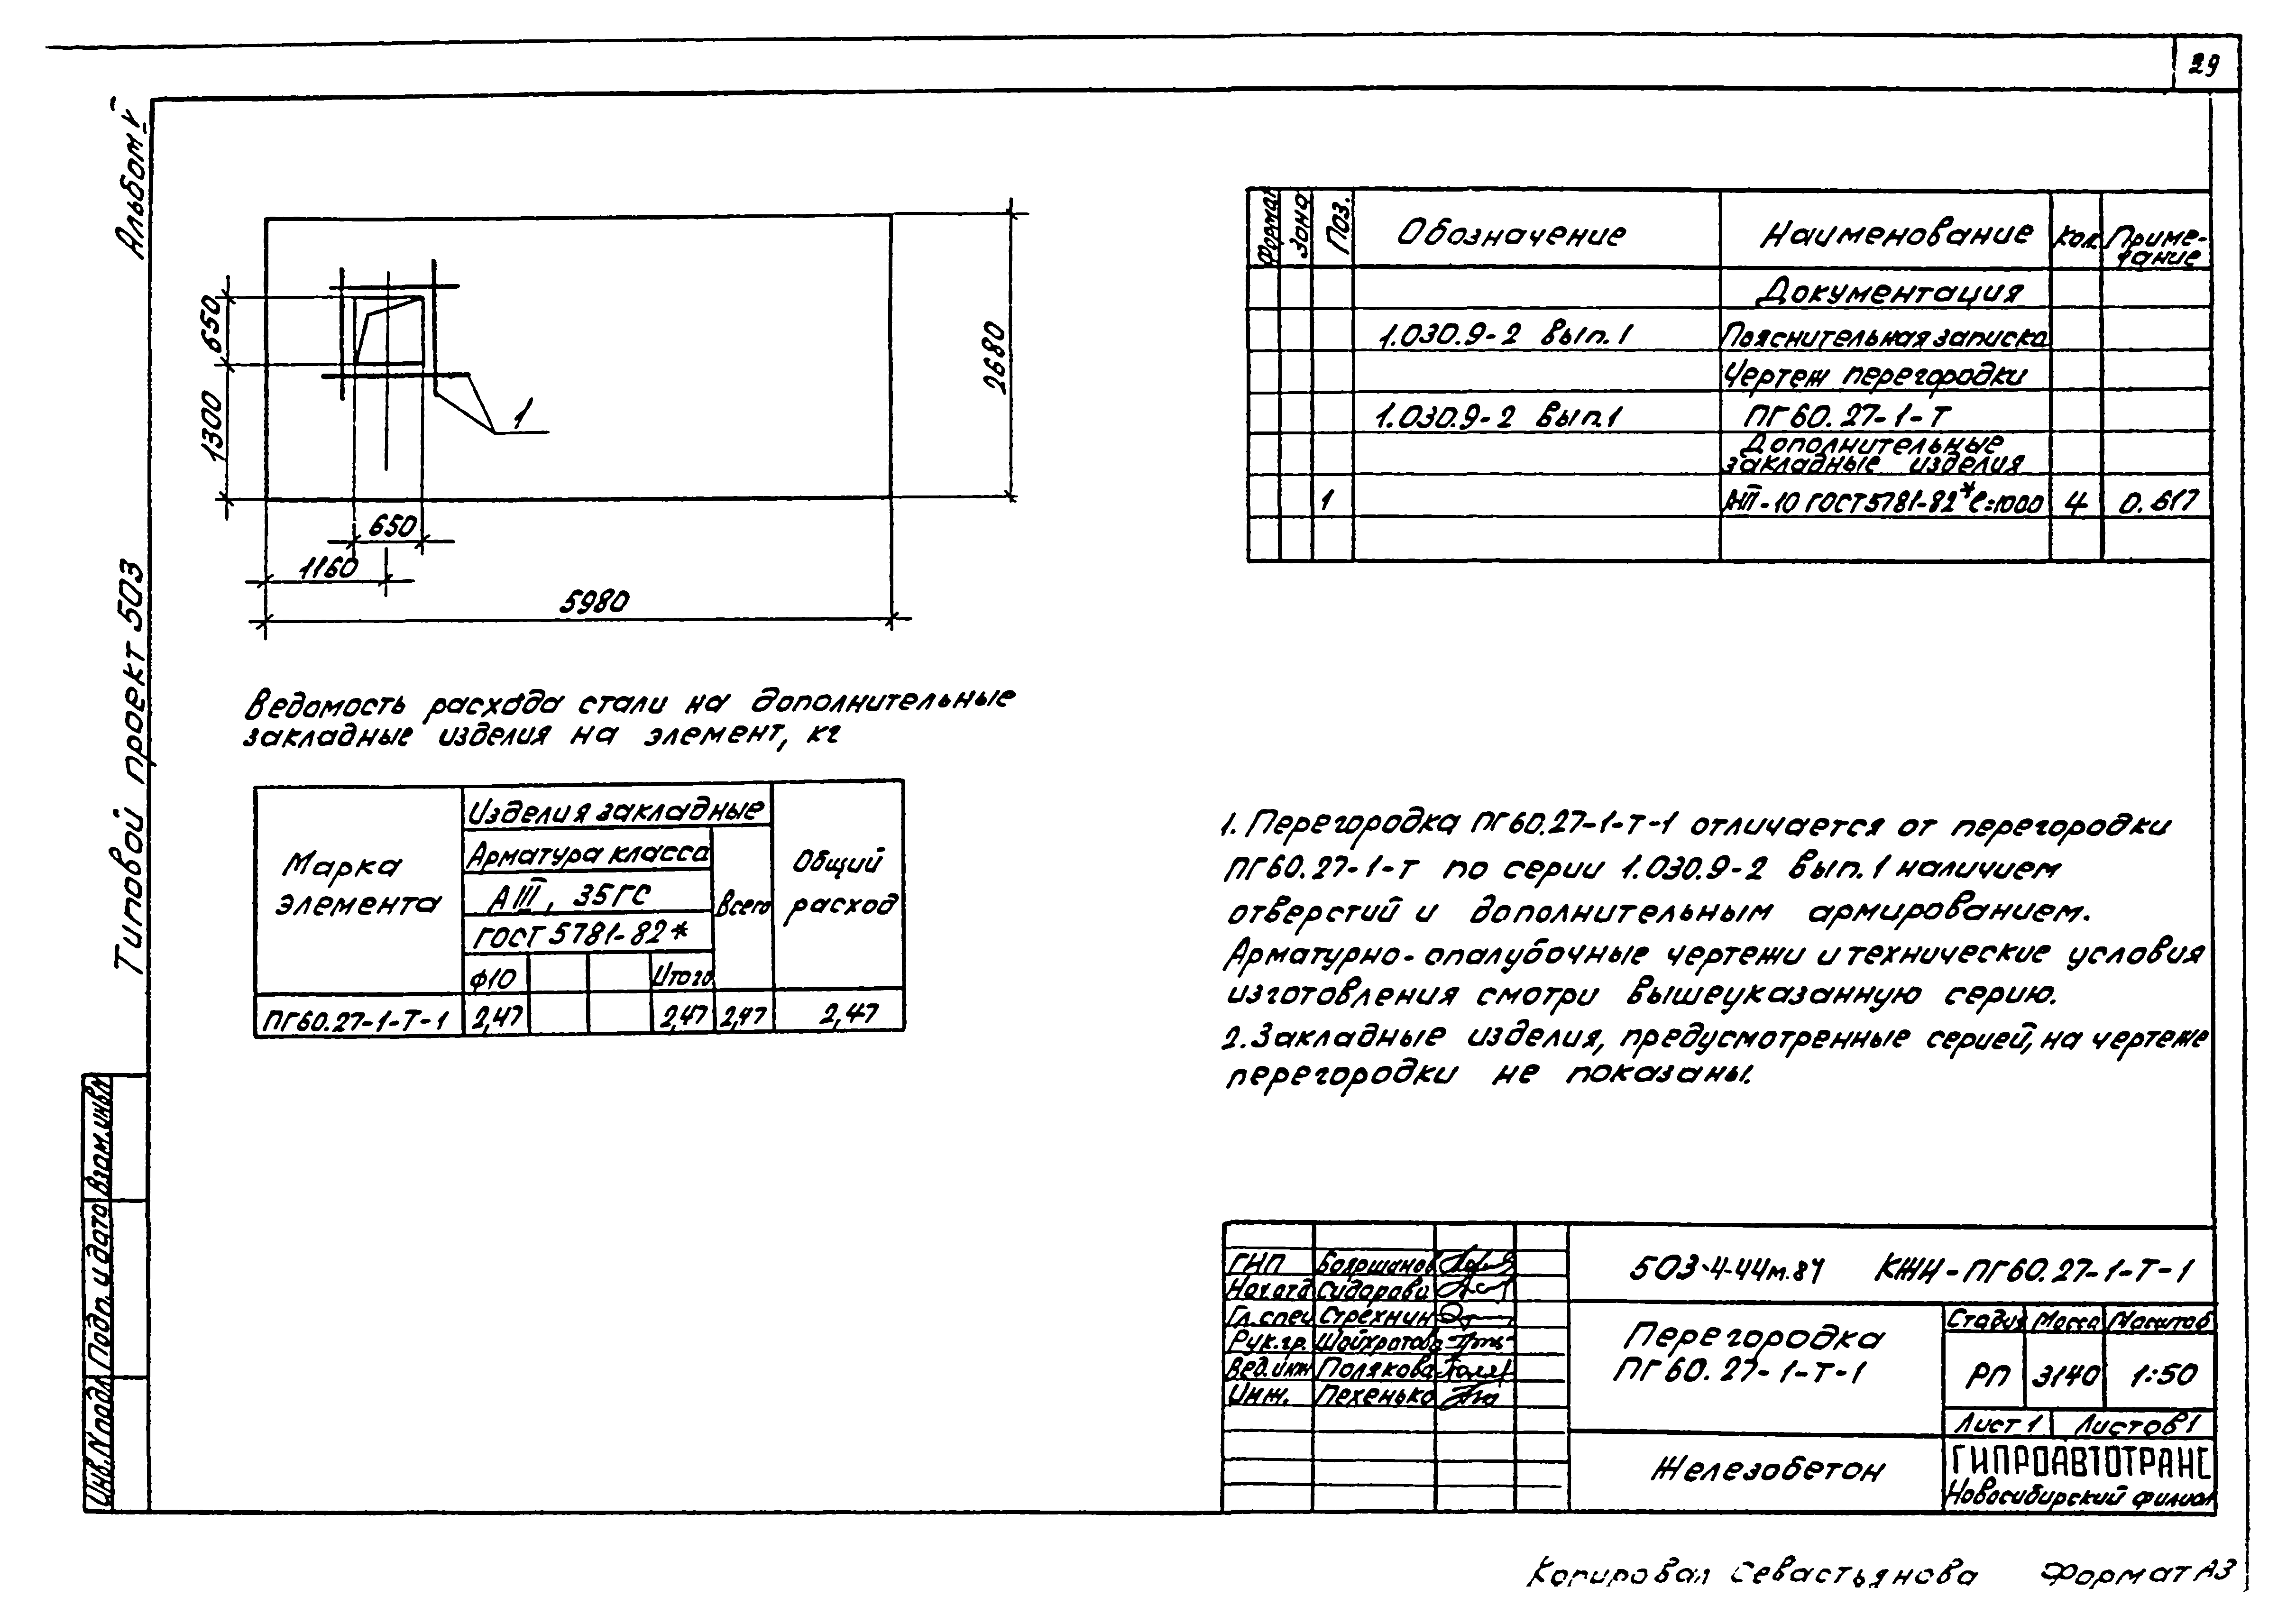 29
Альбом V
Типовой проект 503
650
1300
2680
1
650
1160
5980
Формат Зона Поз. Обозначение Наименование Кол. Приме-
чание
Документация
1.030.9-2 вып.1 Пояснительная записка
Чертеж перегородки
1.030.9-2 вып.1 ПГ60.27-1-Т
Дополнительные
закладные изделия
1 АIII-10 ГОСТ 5781-82* ℓ=1000 4 0.617
Ведомость расхода стали на дополнительные
закладные изделия на элемент, кг
Марка
элемента
Изделия закладные
Арматура класса
АIII, 35ГС
ГОСТ 5781-82*
ф10 Итого
Всего
Общий
расход
ПГ60.27-1-Т-1 2,47 2,47 2,47 2,47
1. Перегородка ПГ60.27-1-Т-1 отличается от перегородки
ПГ60.27-1-Т по серии 1.030.9-2 вып.1 наличием
отверстий и дополнительным армированием.
Арматурно-опалубочные чертежи и технические условия
изготовления смотри вышеуказанную серию.
2. Закладные изделия, предусмотренные серией, на чертеже
перегородки не показаны.
Взам.инв.N
Подп. и дата
Инв.N подл.
ГИП Бояршанов
Нач.отд Сидорова
Гл.спец Стрехнин
Рук.гр. Шайхратова
Вед.инж Полякова
Инж. Пехенько
503-4-44м.84 КЖИ-ПГ60.27-1-Т-1
Перегородка
ПГ60.27-1-Т-1
Стадия Масса Масштаб
РП 3140 1:50
Лист 1 Листов 1
Железобетон
ГИПРОАВТОТРАНС
Новосибирский филиал
Копировал Севастьянова Формат А3